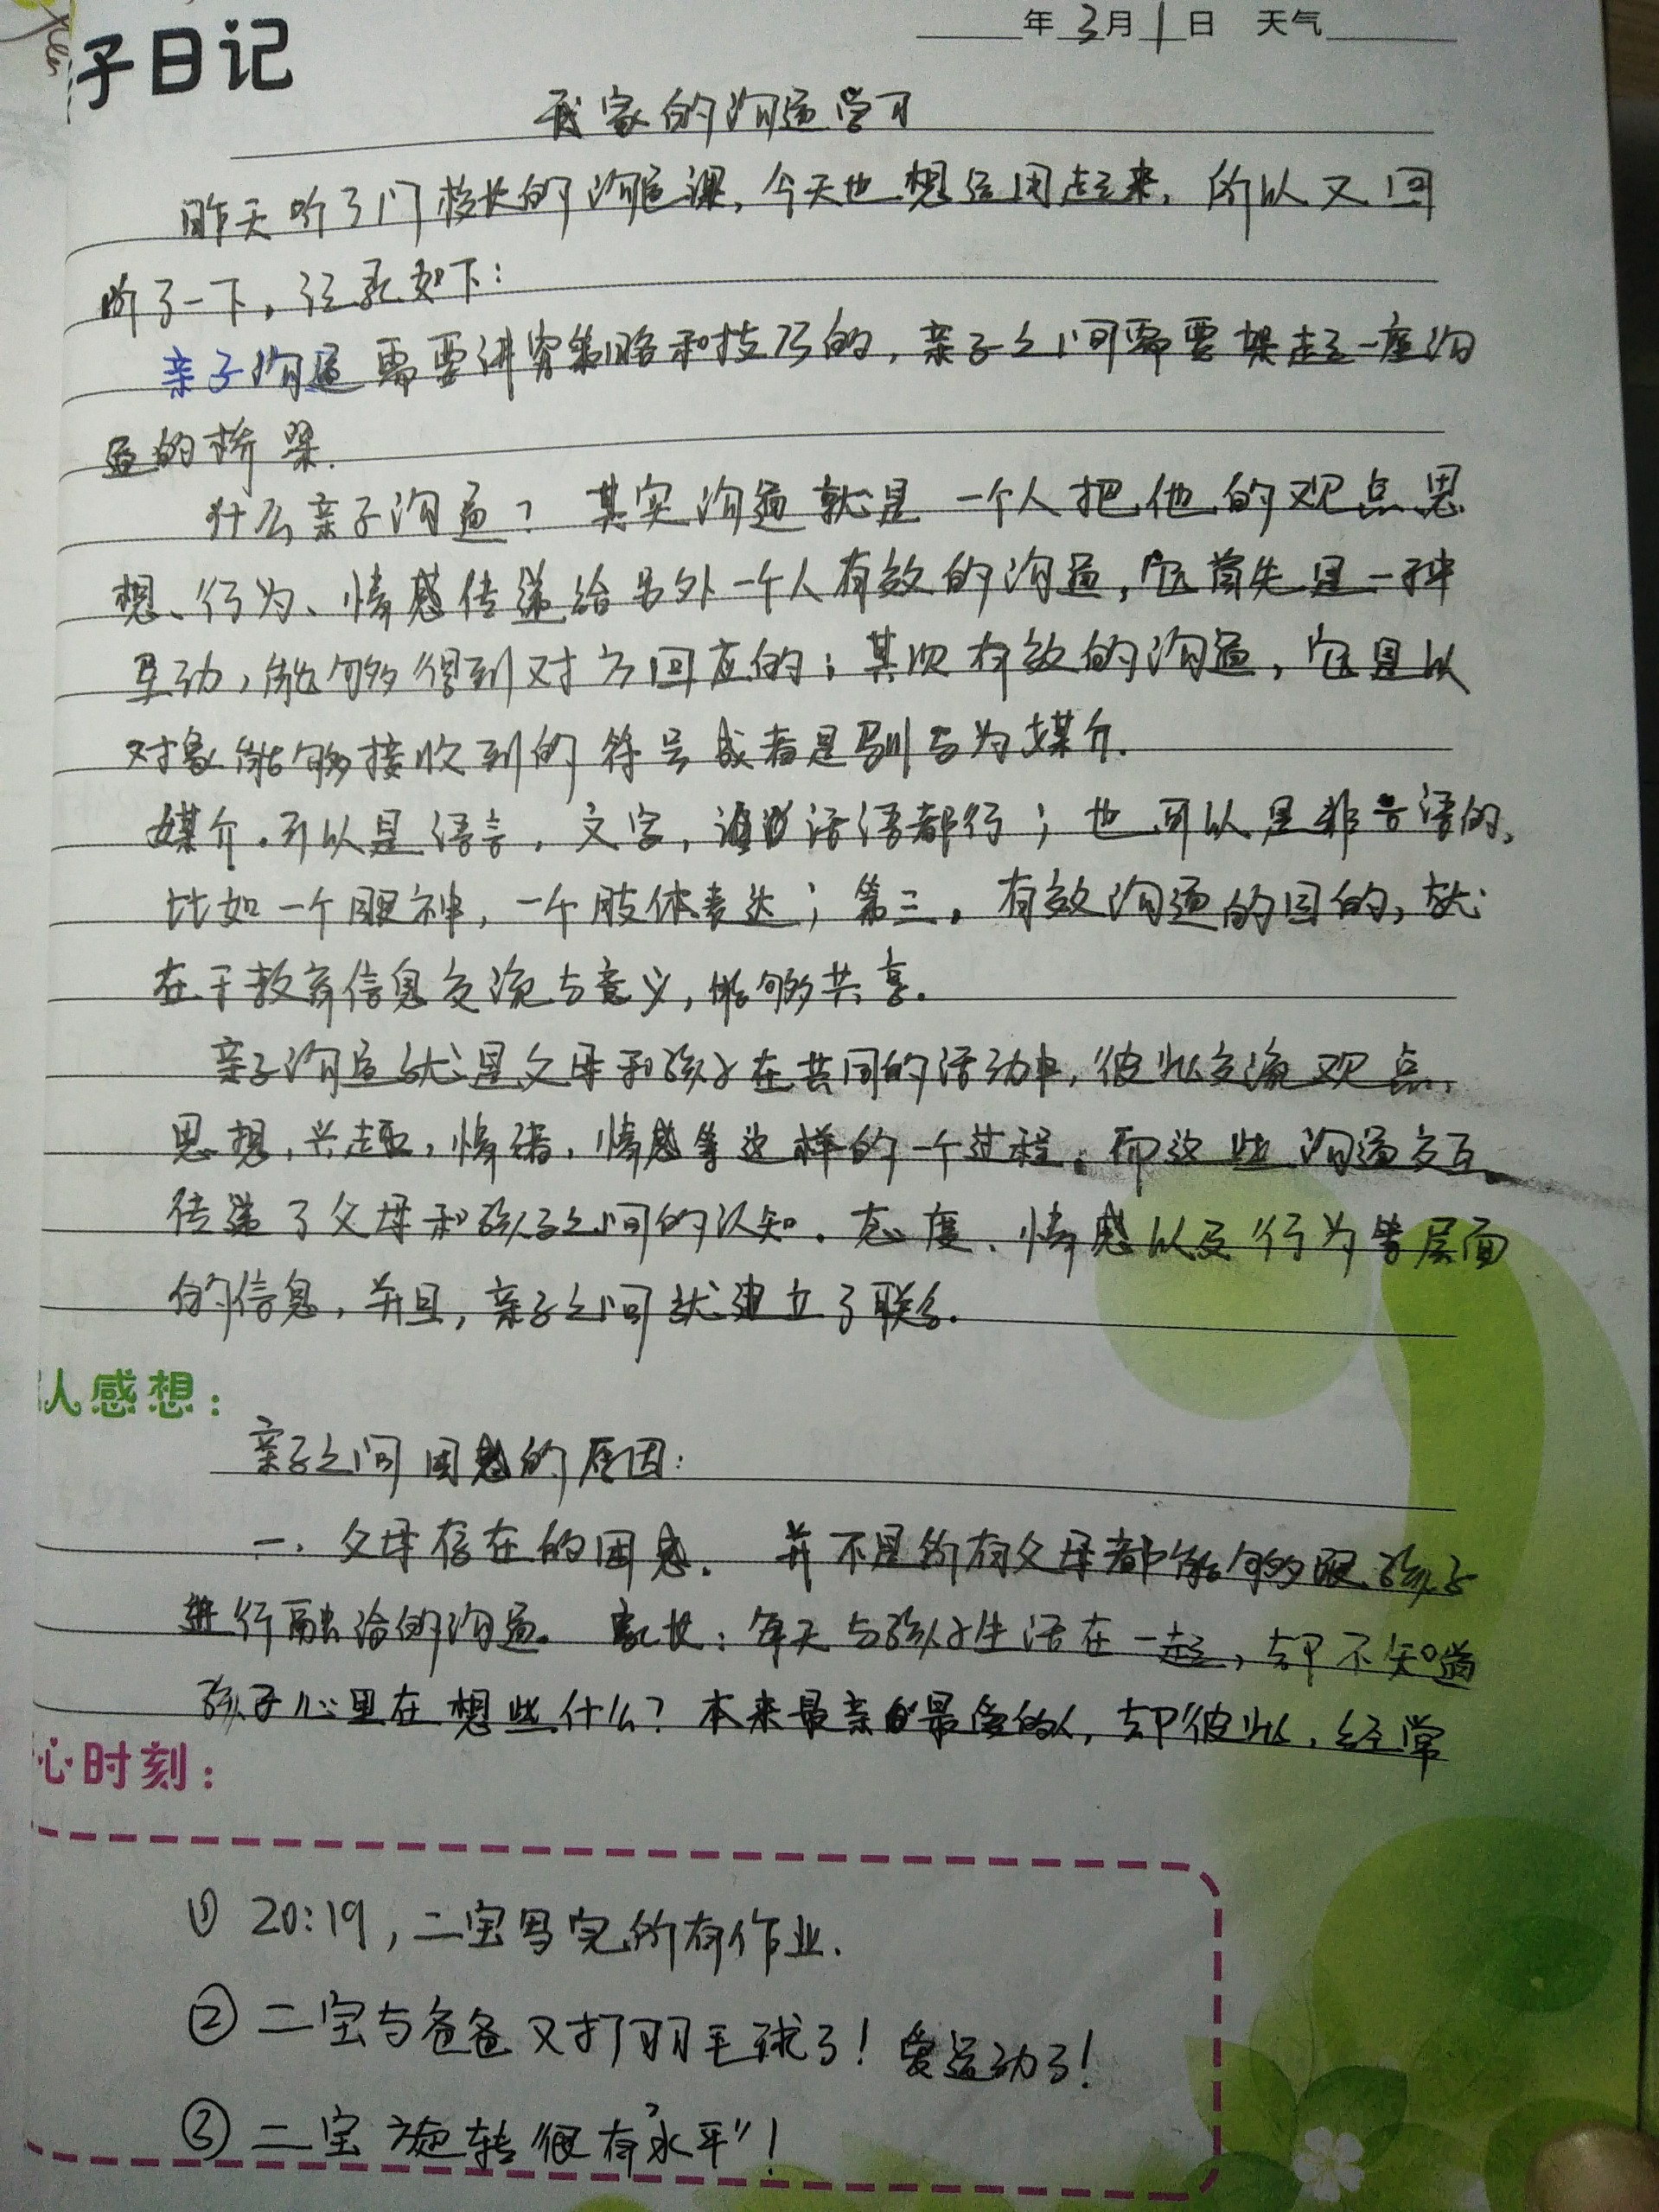 子日记
年3月1日 天气
我家的沟通学习
昨天听了门校长的沟通课,今天也想运用起来,所以又回
听了一下,记录如下:
亲子沟通需要讲究策略和技巧的,亲子之间需要架起一座沟
通的桥梁.
什么亲子沟通?其实沟通就是一个人把他的观点思
想、行为、情感传递给另外一个人有效的沟通,它首先是一种
互动,能够得到对方回应的;其次有效的沟通,它是以
对象能够接收到的符号或者是为媒介.
媒介.可以是语言,文字,话语都行;也可以是非言语的,
比如一个眼神,一个肢体表达;第三,有效沟通的目的,就
在于教育信息交流与意义,能够共享.
亲子沟通就是父母和孩子在共同的活动中,彼此交流观点,
思想,兴趣,情绪,情感等这样的一个过程,而这些沟通交互
传递了父母和孩子之间的认知.态度、情感以及行为等层面
的信息,并且,亲子之间就建立了联系.
人感想:
亲子之间困惑的原因:
一.父母存在的困惑.并不是所有父母都能够跟孩子
进行融洽的沟通。家长:每天与孩子生活在一起,却不知道
孩子心里在想些什么?本来最亲的最爱的人,却彼此,经常
心时刻:
① 20:19,二宝写完所有作业.
② 二宝与爸爸又打羽毛球了!爱运动了!
③ 二宝旋转“很有水平”!